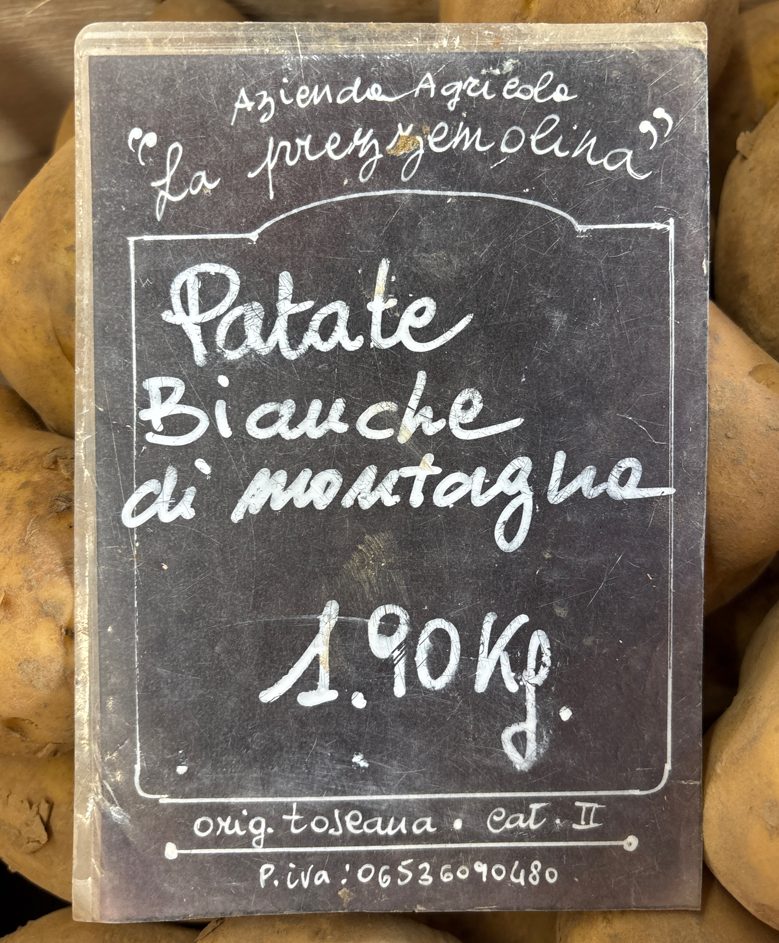 Azienda Agricola
"La prezzemolina"
Patate
Bianche
di montagna
1.90 Kg.
orig. toscana • cat. II
P.iva : 06536090480